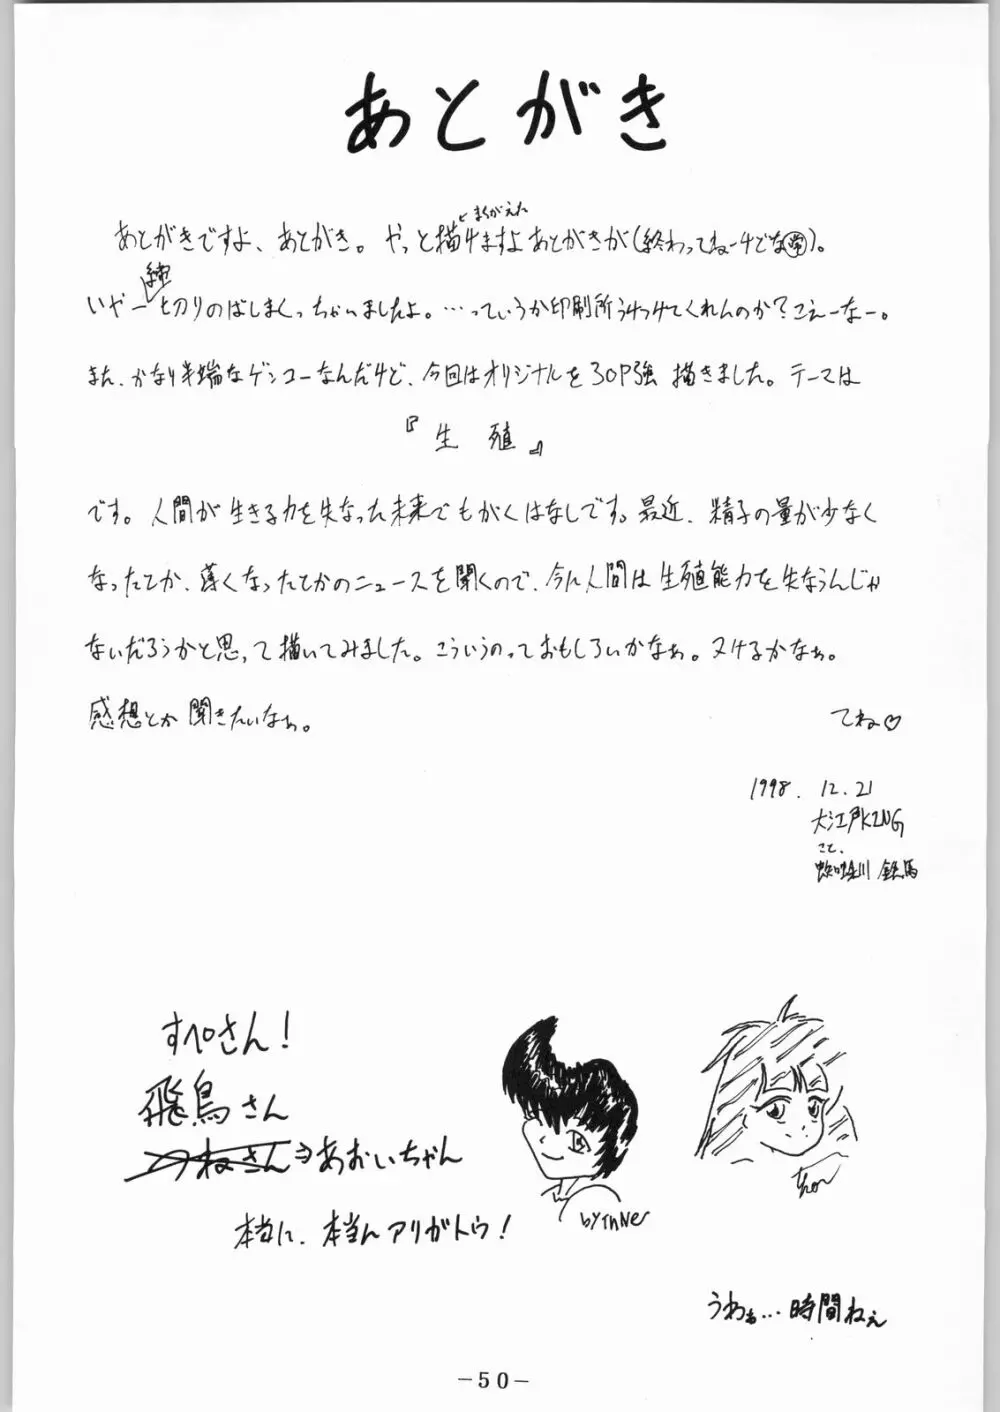 あとがき
まちがえた
あとがきですよ、あとがき。やっと描けますよあとがきが(終わってねーけどな㊙)。
いやー〆切りのばしまくっちゃいましたよ。…っていうか印刷所うけつけてくれんのか?こえーなー。
また、かなり半端なゲンコーなんだけど、今回はオリジナルを30P強 描きました。テーマは
『生 殖』
です。人間が生きる力を失なった未来でもがくはなしです。最近、精子の量が少なく
なったとか、薄くなったとかのニュースを聞くので、今に人間は生殖能力を失なうんじゃ
ないだろうかと思って描いてみました。こういうのっておもしろいかなぁ。ヌけるかなぁ。
感想とか聞きたいなぁ。
てね♡
1998. 12. 21
大江戸KING
こと、
川 鉄馬
すぺさん!
飛鳥さん
つねさん⇒あおいちゃん
本当に、本当にアリガトウ!
by InNer
うわぁ…時間ねぇ
-50-